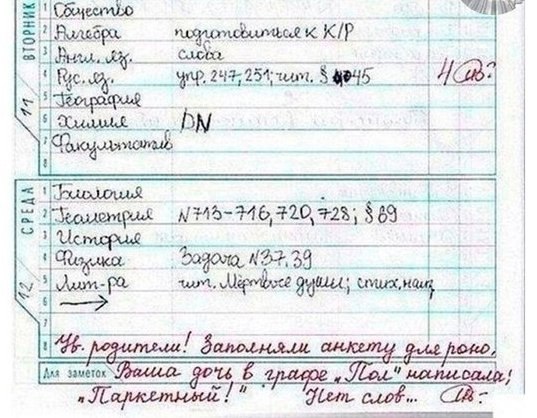 ВТОРНИК 11
1 Общество
2 Алгебра подготовиться к К/Р
3 Англ. яз. слова
4 Рус. яз. упр. 247, 251; чит. § 45 4
5 География
6 Химия DN
7 Факультатив
8
СРЕДА 12
1 Биология
2 Геометрия N713-716, 720, 728; § 69
3 История
4 Физика Задача N37, 39
5 Лит-ра чит. Мёртвые души; стих. наиз.
6 →
7
8 Ув. родители! Заполняли анкету для роно,
Для заметок Ваша дочь в графе „Пол" написала;
„Паркетный!" Нет слов...